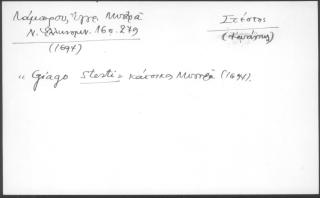 Λάμπρου, Ἔγγρ. Μυστρᾶ
Ν. Ἑλληνομν. 16ος. 279
(1694)
Στέστης
« Giago Stesti » κάτοικος Μυστρᾶ (1694).